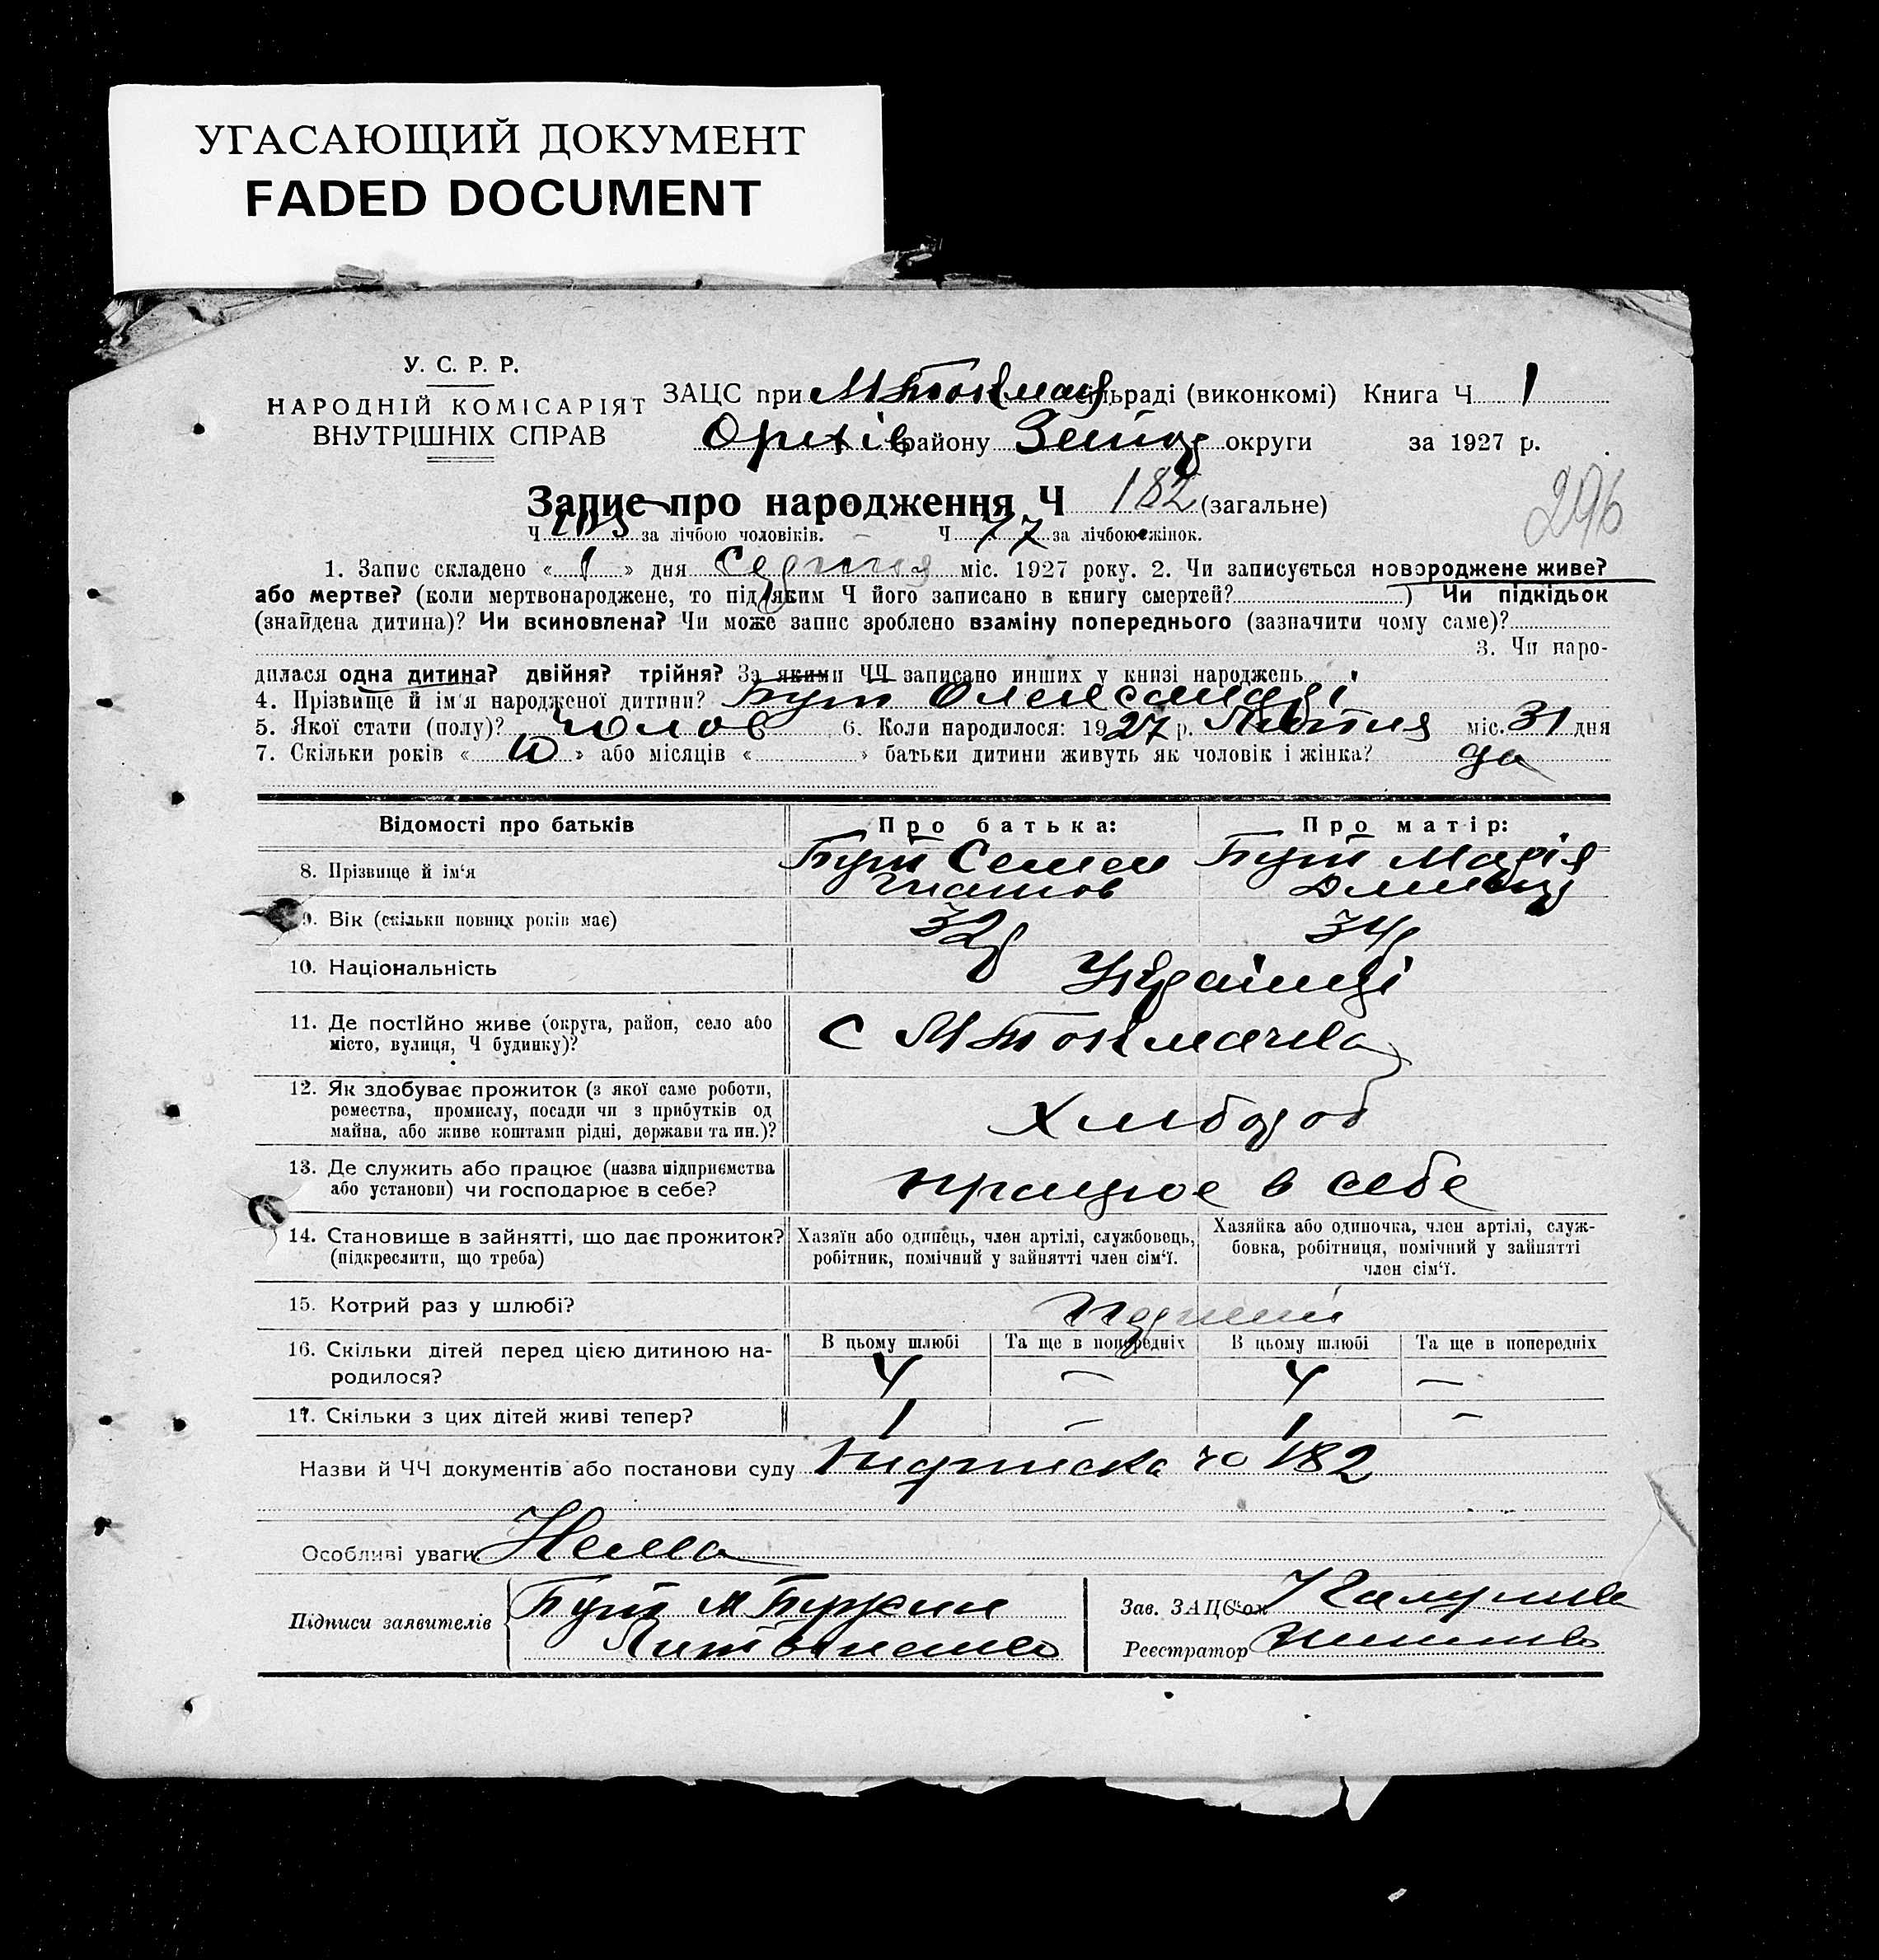 УГАСАЮЩИЙ ДОКУМЕНТ
FADED DOCUMENT
У. С. Р. Р.
НАРОДНІЙ КОМІСАРІЯТ
ВНУТРІШНІХ СПРАВ
ЗАЦС при М Токмац сільраді (виконкомі) Книга Ч 1
Оріхів району Запор округи за 1927 р.
Запис про народження Ч 182 (загальне)
296
Ч 105 за лічбою чоловіків. Ч 77 за лічбою жінок.
1. Запис складено « 1 » дня Серпня міс. 1927 року. 2. Чи записується новороджене живе?
або мертве? (коли мертвонароджене, то під яким Ч його записано в книгу смертей? ) Чи підкідьок
(знайдена дитина)? Чи всиновлена? Чи може запис зроблено взаміну попереднього (зазначити чому саме)?
3. Чи наро-
дилася одна дитина? двійня? трійня? За якими ЧЧ записано инших у книзі народжень
4. Прізвище й ім'я народженої дитини? Бут Олександр
5. Якої стати (полу)? чолов 6. Коли народилося: 1927 р. Липня міс. 31 дня
7. Скільки років « 10 » або місяців « » батьки дитини живуть як чоловік і жінка? да
Відомості про батьків Про батька: Про матір:
8. Прізвище й ім'я Бут Семен Бут Марія
Гнатов Дмитр
9. Вік (скільки повних років має) 32р 34р
10. Національність Українці
11. Де постійно живе (округа, район, село або
місто, вулиця, Ч будинку)? С М Токмачка
12. Як здобуває прожиток (з якої саме роботи,
ремества, промислу, посади чи з прибутків од
майна, або живе коштами рідні, держави та ин.)? Хлібороб
13. Де служить або працює (назва підприємства
або установи) чи господарює в себе? працює в себе
14. Становище в зайнятті, що дає прожиток?
(підкреслити, що треба)
Хазяїн або одинець, член артілі, службовець,
робітник, помічний у зайнятті член сім'ї.
Хазяйка або одиночка, член артілі, служ-
бовка, робітниця, помічний у зайнятті
член сім'ї.
15. Котрий раз у шлюбі? Перший
16. Скільки дітей перед цією дитиною на-
родилося?
В цьому шлюбі Та ще в попередніх В цьому шлюбі Та ще в попередніх
4 — 4 —
17. Скільки з цих дітей живі тепер? 1 — 1 —
Назви й ЧЧ документів або постанови суду Підписка 182
Особливі уваги Нема
Підписи заявителів Бут М
Зав. ЗАЦС'ом
Реєстратор